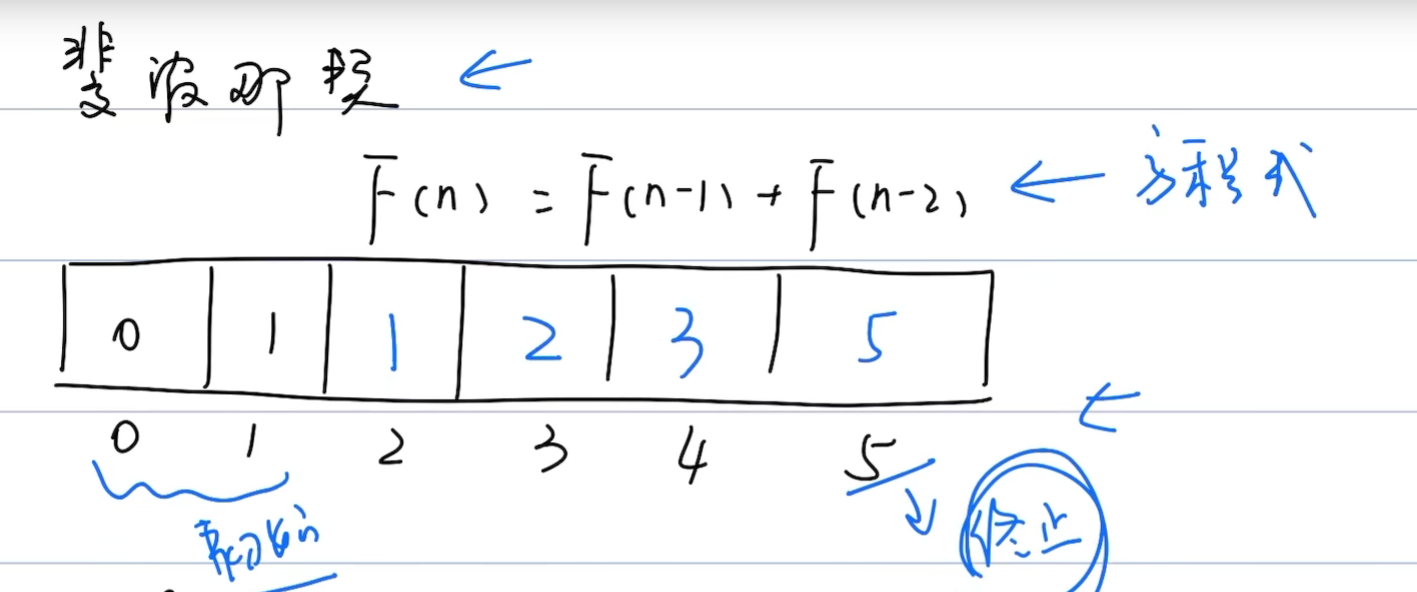 斐波那契 ←
F(n) = F(n-1) + F(n-2) ← 方程式
0 1 1 2 3 5
0 1 2 3 4 5
终止